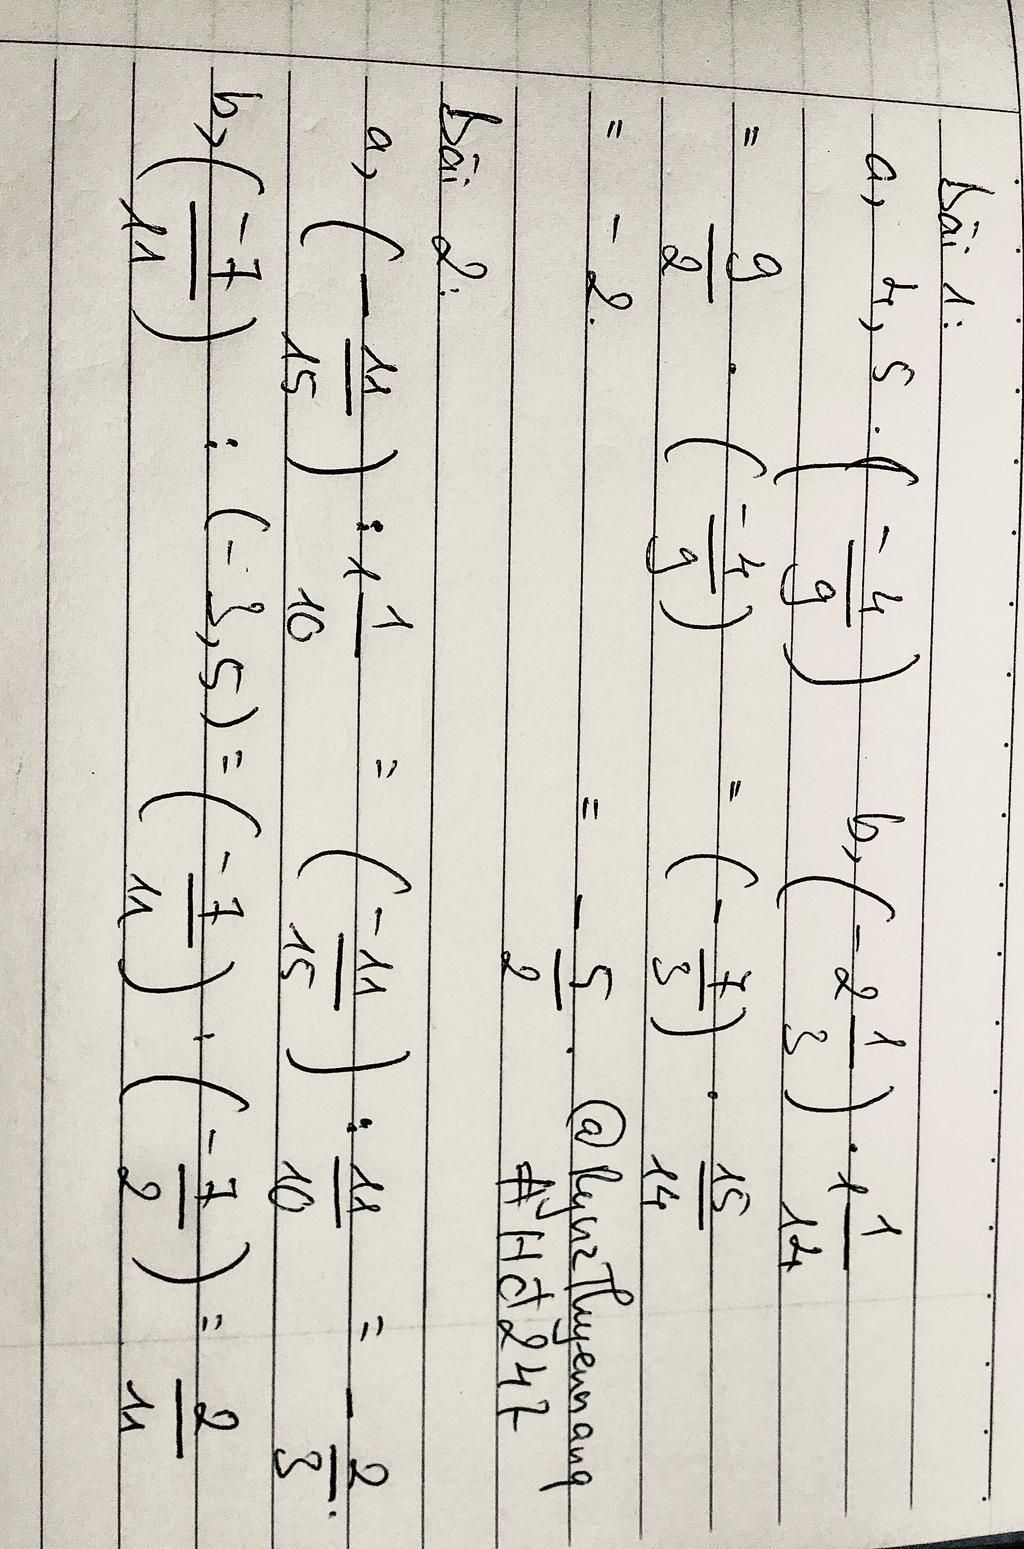 bài 1:
a, 4,5 . (-4/9) b, (-2 1/3) . 1 1/14
= 9/2 . (-4/9) = (-7/3) . 15/14
= -2. = -5/2.
#Hđ247
bài 2:
a, (-11/15) : 1 1/10 = (-11/15) : 11/10 = -2/3.
b, (-7/11) : (-3,5) = (-7/11) . (-7/2) = 2/11